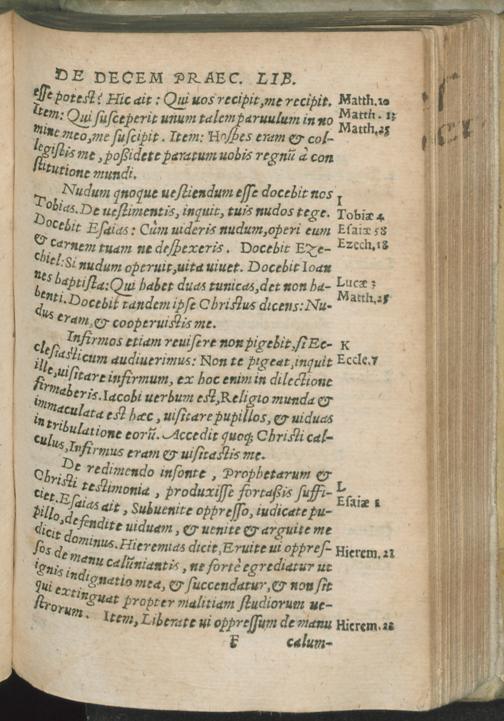 DE DECEM PRAEC. LIB.
esse potest? Hic ait: Qui uos recipit, me recipit. Matth.10
Item: Qui susceperit unum talem paruulum in no Matth. 13
mine meo, me suscipit. Item: Hospes eram & col- Matth,25
legistis me, possidete paratum uobis regnũ à con
stitutione mundi.
Nudum qnoque uestiendum esse docebit nos I
Tobias. De uestimentis, inquit, tuis nudos tege. Tobiæ 4
Docebit Esaias: Cùm uideris nudum, operi eum Esaiæ 58
& carnem tuam ne despexeris. Docebit Eze- Ezech,18
chiel: Si nudum operuit, uita uiuet. Docebit Ioan
nes baptista: Qui habet duas tunicas, det non ha- Lucæ 3
benti. Docebit tandem ipse Christus dicens: Nu- Matth,25
dus eram, & cooperuistis me.
Infirmos etiam reuisere non pigebit, si Ec- K
clesiasticum audiuerimus: Non te pigeat, inquit Eccle.7
ille, uisitare infirmum, ex hoc enim in dilectione
firmaberis. Iacobi uerbum est, Religio munda &
immaculata est hæc, uisitare pupillos, & uiduas
in tribulatione eorũ. Accedit quoq; Christi cal-
culus, Infirmus eram & uisitastis me.
De redimendo insonte, Prophetarum &
Christi testimonia, produxisse fortaßis suffi- L
ciet. Esaias ait, Subuenite oppresso, iudicate pu- Esaiæ 1
pillo, defendite uiduam, & uenite & arguite me
dicit dominus. Hieremias dicit, Eruite ui oppres- Hierem. 21
sos de manu calũniantis, ne fortè egrediatur ut
ignis indignatio mea, & succendatur, & non sit
qui extinguat propter malitiam studiorum ue-
strorum. Item, Liberate ui oppressum de manu Hierem. 22
F calum-